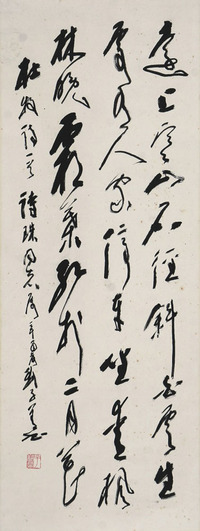 远上寒山石径斜白云生
处有人家停车坐爱枫
林晚霜叶红于二月花
杜牧诗一首 诗珠同志属